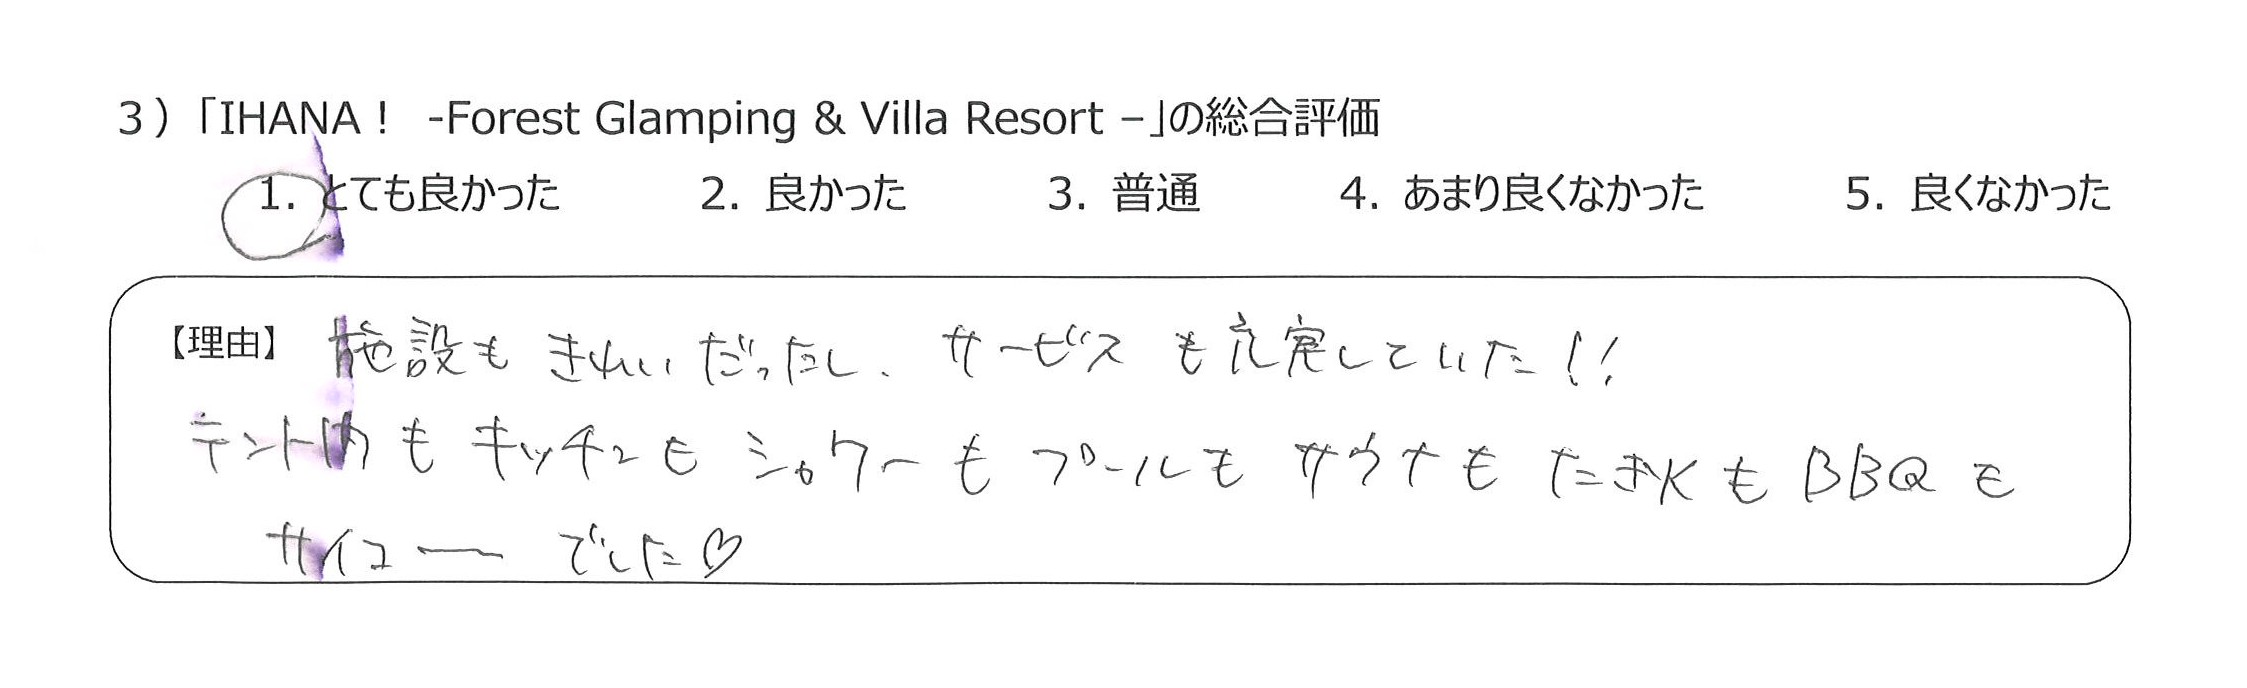 3)「IHANA！ -Forest Glamping & Villa Resort –」の総合評価
1. とても良かった 2. 良かった 3. 普通 4. あまり良くなかった 5. 良くなかった
【理由】 施設もきれいだったし、サービスも充実していた!!
テント内もキッチンもシャワーもプールもサウナもたき火もBBQも
サイコーでした♡